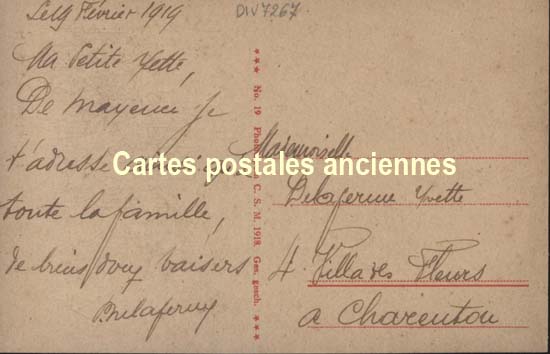 Le 19 Février 1919
DIV7267
Ma Petite Yette,
De Mayence je
t'adresse
toute la famille,
de biens doux baisers
Delaferme
*** No. 19 C. S. M. 1918. Ges. gesch. ***
Cartes postales anciennes
Mademoiselle
Delaferme Yvette
4. Villa des Fleurs
a Charenton